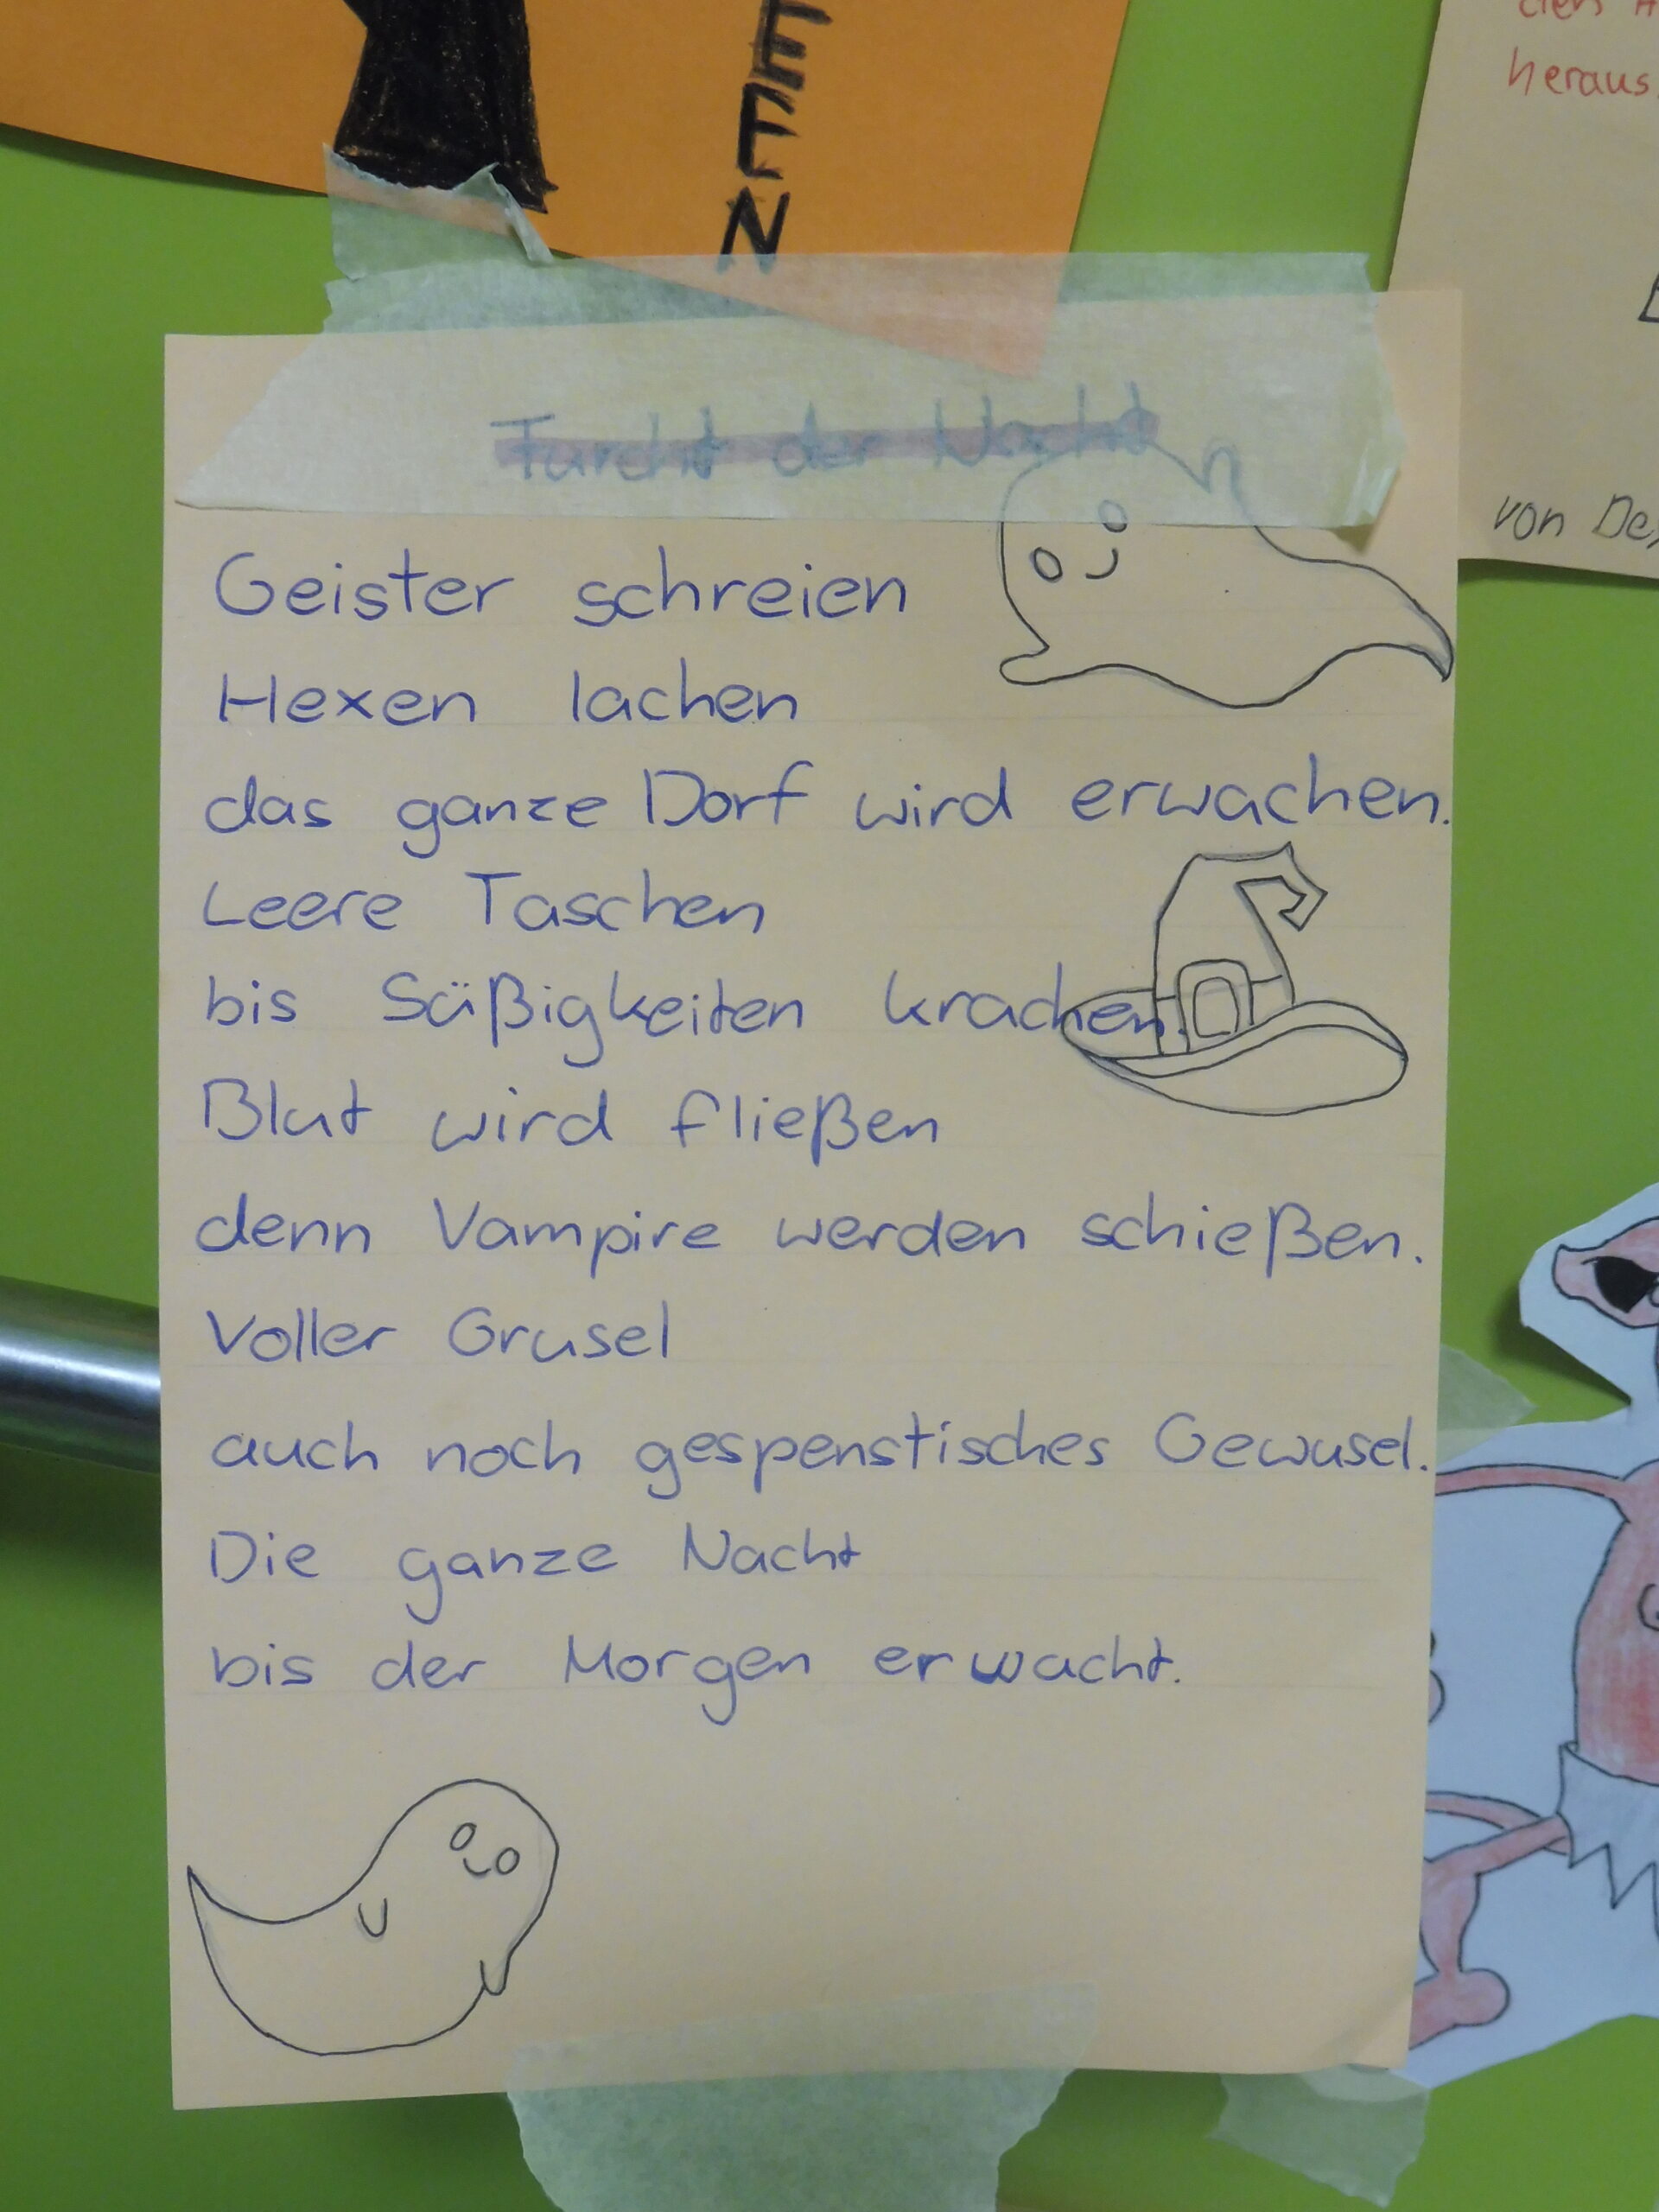 E
E
N
heraus.
von De
Furcht der Nacht
Geister schreien
Hexen lachen
das ganze Dorf wird erwachen.
Leere Taschen
bis Süßigkeiten krachen.
Blut wird fließen
denn Vampire werden schießen.
Voller Grusel
auch noch gespenstisches Gewusel.
Die ganze Nacht
bis der Morgen erwacht.